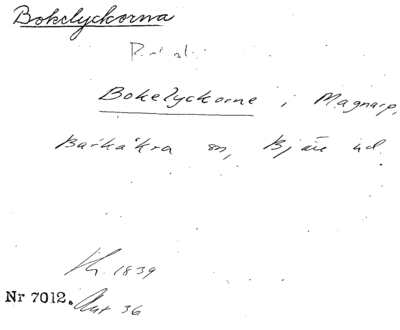 Bokelyckorna
Bokelyckorne i Magnarp,
Barkåkra sn, Bjäre hd
1839
Nr 7012. Akt 36